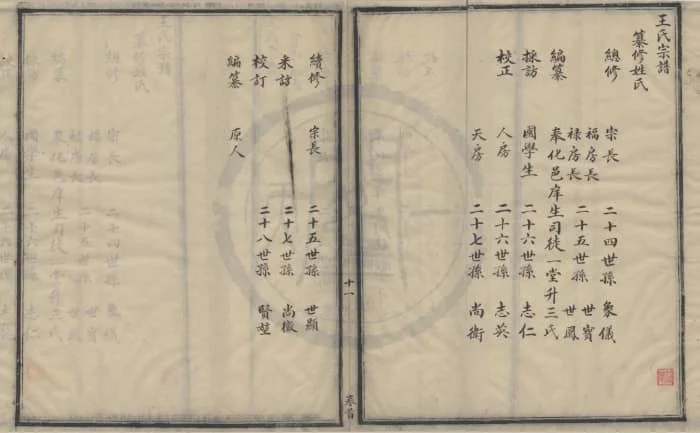 王氏宗譜
纂修姓氏
總修 宗長 二十四世孫 象儀
福房長 二十五世孫 世寶
祿房長 世鳳
編纂 奉化邑庠生司徒一堂升三氏
採訪 國學生 二十六世孫 志仁
校正 人房 二十六世孫 志英
天房 二十七世孫 尚衛
十一
卷首
續修 宗長 二十五世孫 世顯
來訪 二十七世孫 尚徽
校訂
編纂 原人 二十八世孫 賢堃